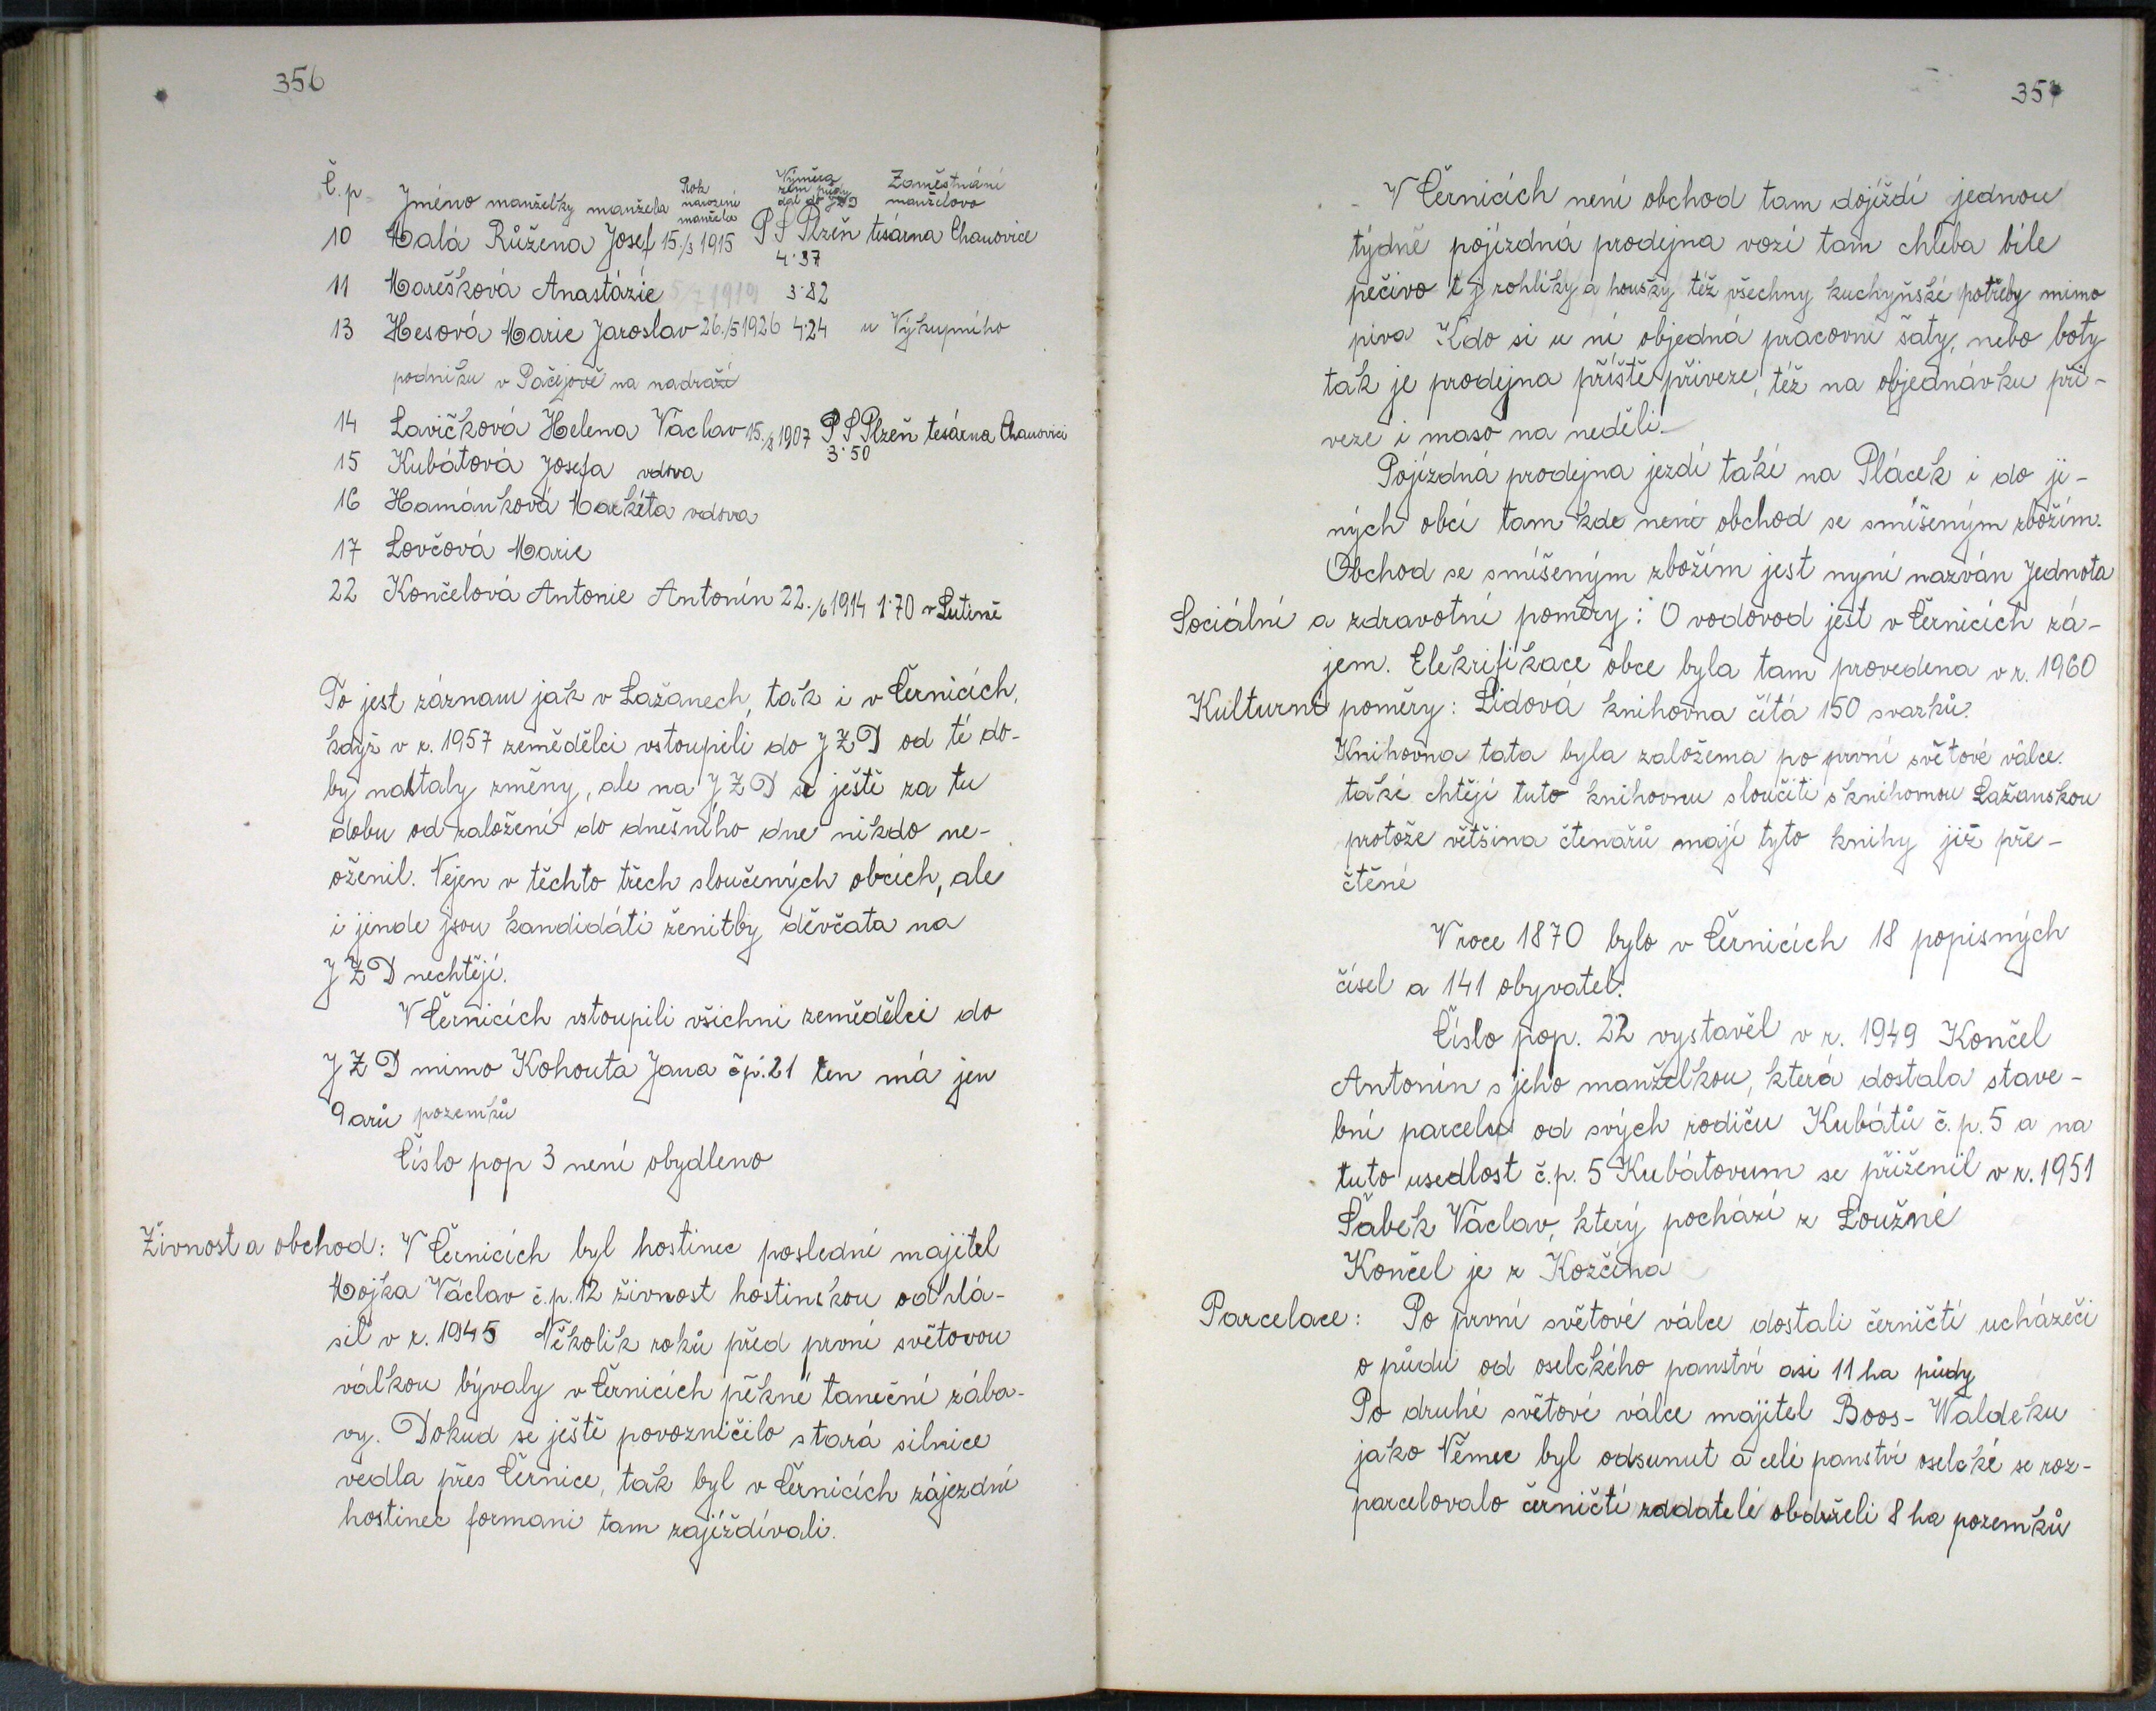 356
Č.p. Jméno manželky manžela Rok narození manžela Výměra zem půdy dal do JZD Zaměstnání manželovo
10 Malá Růžena Josef 15./3 1915 P S Plzeň tesárna Chanovice
4·37
11 Marešková Anastázie 1919 3·82
13 Hesová Marie Jaroslav 26./5 1926 4·24 u Výkupního
podniku v Pačejově na nadraží
14 Lavičková Helena Václav 15./8 1907 P S Plzeň tesárna Chanovici
3·50
15 Kubátová Josefa vdova
16 Hamánková Markéta vdova
17 Lovčová Marie
22 Končelová Antonie Antonín 22./6 1914 1·70 v Lutině
To jest záznam jak v Lažanech, tak i v Černicích,
když v r. 1957 zemědělci vstoupili do JZD od té do-
by nastaly změny, ale na JZD se ještě za tu
dobu od založení do dnešního dne nikdo ne-
oženil. Nejen v těchto třech sloučených obcích, ale
i jinde jsou kandidáti ženitby děvčata na
JZD nechtějí.
V Černicích vstoupili všichni zemědělci do
JZD mimo Kohouta Jana čp. 21 ten má jen
9 arů pozemků
Číslo pop 3 není obydleno
Živnost a obchod: V Černicích byl hostinec poslední majitel
Mojka Václav č.p. 12 živnost hostinskou odhlá-
sil v r. 1945 Několik roků před první světovou
válkou bývaly v Černicích pěkné taneční zába-
vy. Dokud se ještě povozničilo stará silnice
vedla přes Černice, tak byl v Černicích zájezdní
hostinec formani tam zajíždívali.
357
V Černicích není obchod tam dojíždí jednou
týdně pojízdná prodejna vozí tam chleba bíle
pečivo t j rohlíky a housky též všechny kuchyňské potřeby mimo
piva Kdo si u ní objedná pracovní šaty, nebo boty
tak je prodejna příště přiveze, též na objednávku při-
veze i maso na neděli.
Pojízdná prodejna jezdí také na Plácek i do ji-
ných obcí tam kde není obchod se smíšeným zbožím.
Obchod se smíšeným zbožím jest nyní nazván Jednota
Sociální a zdravotní poměry: O vodovod jest v Černicích zá-
jem. Elekrifikace obce byla tam provedena v r. 1960
Kulturní poměry: Lidová knihovna čítá 150 svazků.
Knihovna tato byla založema po první světové válce.
také chtějí tuto knihovnu sloučiti s knihovnou Lažanskou
protože většina čtenářů mají tyto knihy již pře-
čtěné
V roce 1870 bylo v Černicích 18 popisných
čísel a 141 obyvatel.
Číslo pop. 22 vystavěl v r. 1949 Končel
Antonín s jeho manželkou, která dostala stave-
bní parcelu od svých rodiču Kubátů č.p. 5 a na
tuto usedlost č.p. 5 Kubátovum se přiženil v r. 1951
Šabek Václav, který pochází z Loužné
Končel je z Kozčína
Parcelace: Po první světové válce dostali černičtí ucházeči
o půdu od oselckého panství asi 11 ha půdy
Po druhé světové válce majitel Boos-Waldeku
jako Němec byl odsunut a celé panství oselcké se roz-
parcelovalo černičtí zadatelé obdrželi 8 ha pozemků